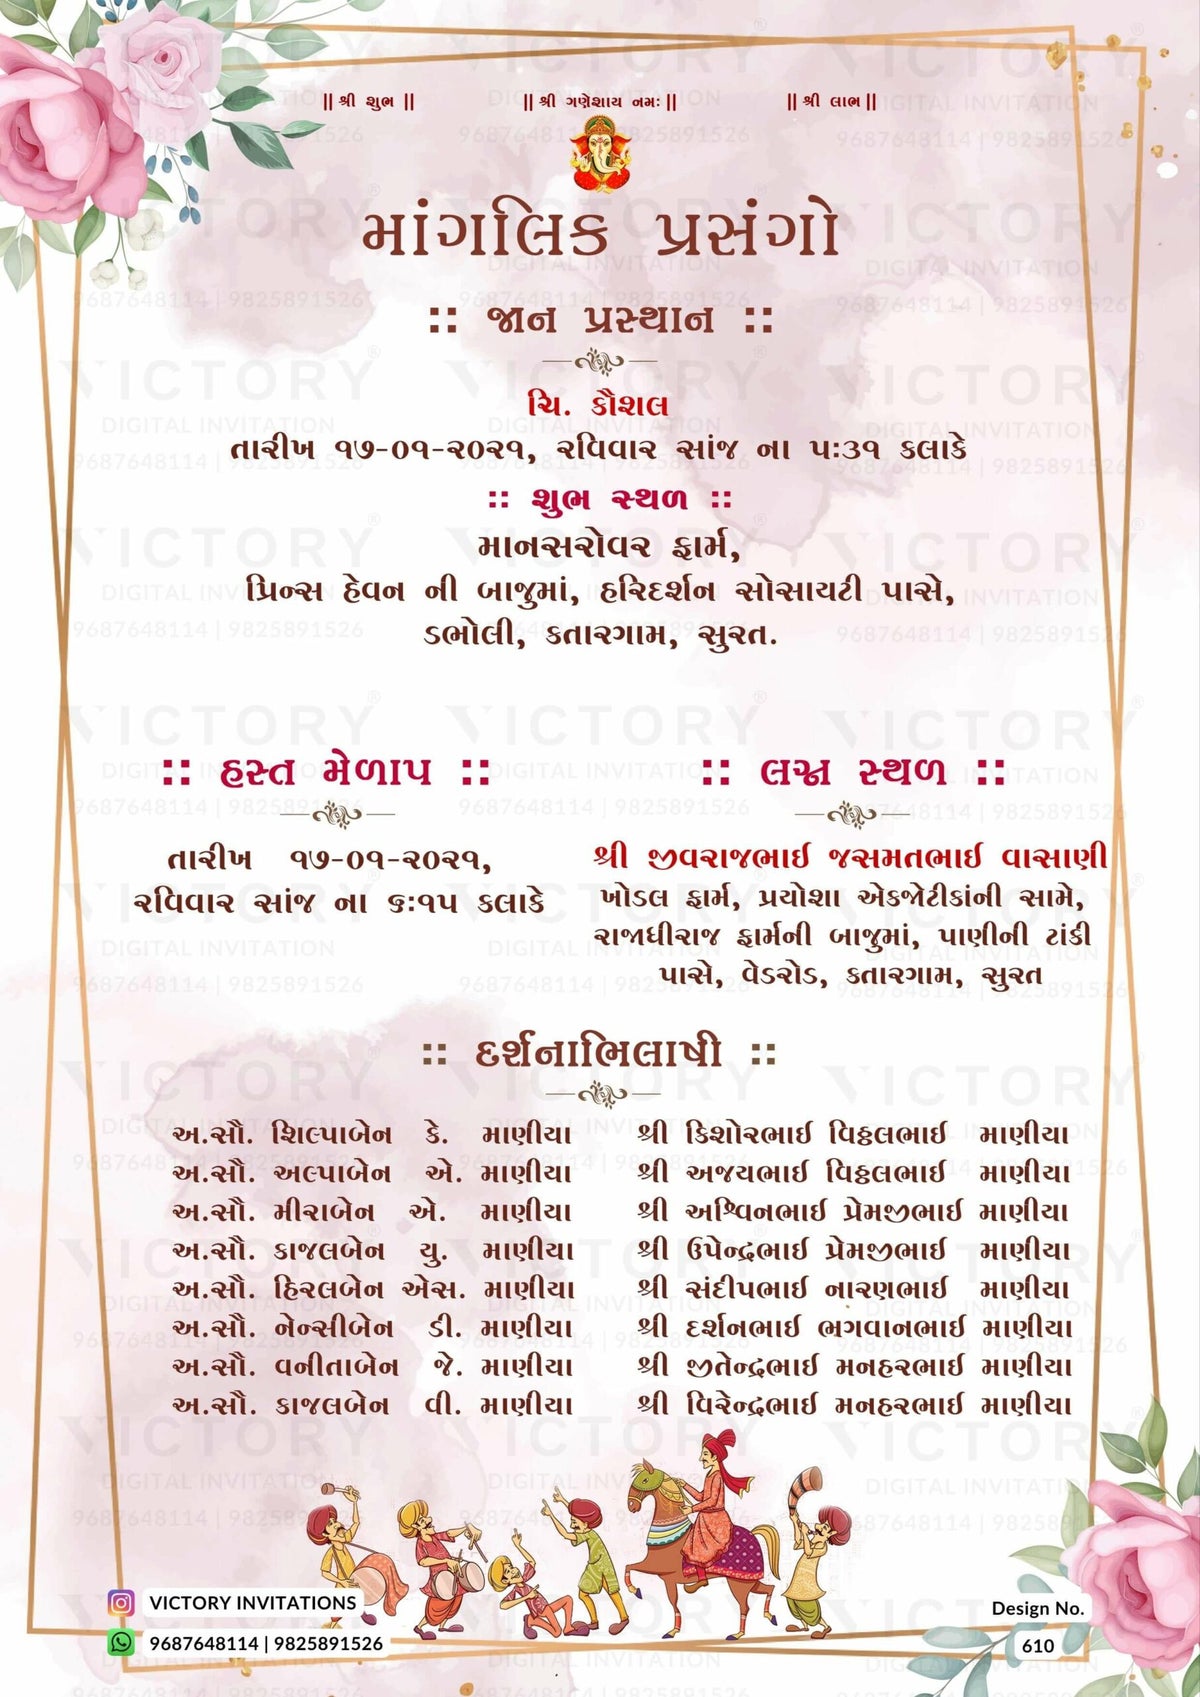 || શ્રી શુભ || || શ્રી ગણેશાય નમઃ || || શ્રી લાભ ||
માંગલિક પ્રસંગો
:: જાન પ્રસ્થાન ::
ચિ. કૌશલ
તારીખ ૧૭-૦૧-૨૦૨૧, રવિવાર સાંજ ના ૫:૩૧ કલાકે
:: શુભ સ્થળ ::
માનસરોવર ફાર્મ,
પ્રિન્સ હેવન ની બાજુમાં, હરિદર્શન સોસાયટી પાસે,
ડભોલી, કતારગામ, સુરત.
:: હસ્ત મેળાપ ::
તારીખ ૧૭-૦૧-૨૦૨૧,
રવિવાર સાંજ ના ૬:૧૫ કલાકે
:: લગ્ન સ્થળ ::
શ્રી જીવરાજભાઈ જસમતભાઈ વાસાણી
ખોડલ ફાર્મ, પ્રયોશા એકજોટીકાંની સામે,
રાજાધીરાજ ફાર્મની બાજુમાં, પાણીની ટાંકી
પાસે, વેડરોડ, કતારગામ, સુરત
:: દર્શનાભિલાષી ::
અ.સૌ. શિલ્પાબેન કે. માણીયા
અ.સૌ. અલ્પાબેન એ. માણીયા
અ.સૌ. મીરાબેન એ. માણીયા
અ.સૌ. કાજલબેન યુ. માણીયા
અ.સૌ. હિરલબેન એસ. માણીયા
અ.સૌ. નેન્સીબેન ડી. માણીયા
અ.સૌ. વનીતાબેન જે. માણીયા
અ.સૌ. કાજલબેન વી. માણીયા
શ્રી કિશોરભાઈ વિઠ્ઠલભાઈ માણીયા
શ્રી અજયભાઈ વિઠ્ઠલભાઈ માણીયા
શ્રી અશ્વિનભાઈ પ્રેમજીભાઈ માણીયા
શ્રી ઉપેન્દ્રભાઈ પ્રેમજીભાઈ માણીયા
શ્રી સંદીપભાઈ નારણભાઈ માણીયા
શ્રી દર્શનભાઈ ભગવાનભાઈ માણીયા
શ્રી જીતેન્દ્રભાઈ મનહરભાઈ માણીયા
શ્રી વિરેન્દ્રભાઈ મનહરભાઈ માણીયા
VICTORY INVITATIONS
9687648114 | 9825891526
Design No.
610